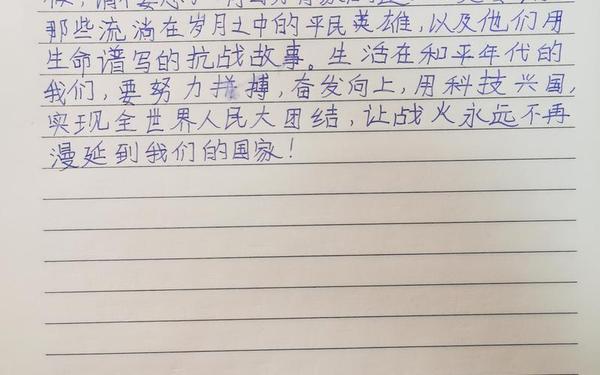 那些流淌在岁月之中的平民英雄,以及他们用
生命谱写的抗战故事。生活在和平年代的
我们,要努力拼搏,奋发向上,用科技兴国,
实现全世界人民大团结,让战火永远不再
漫延到我们的国家!